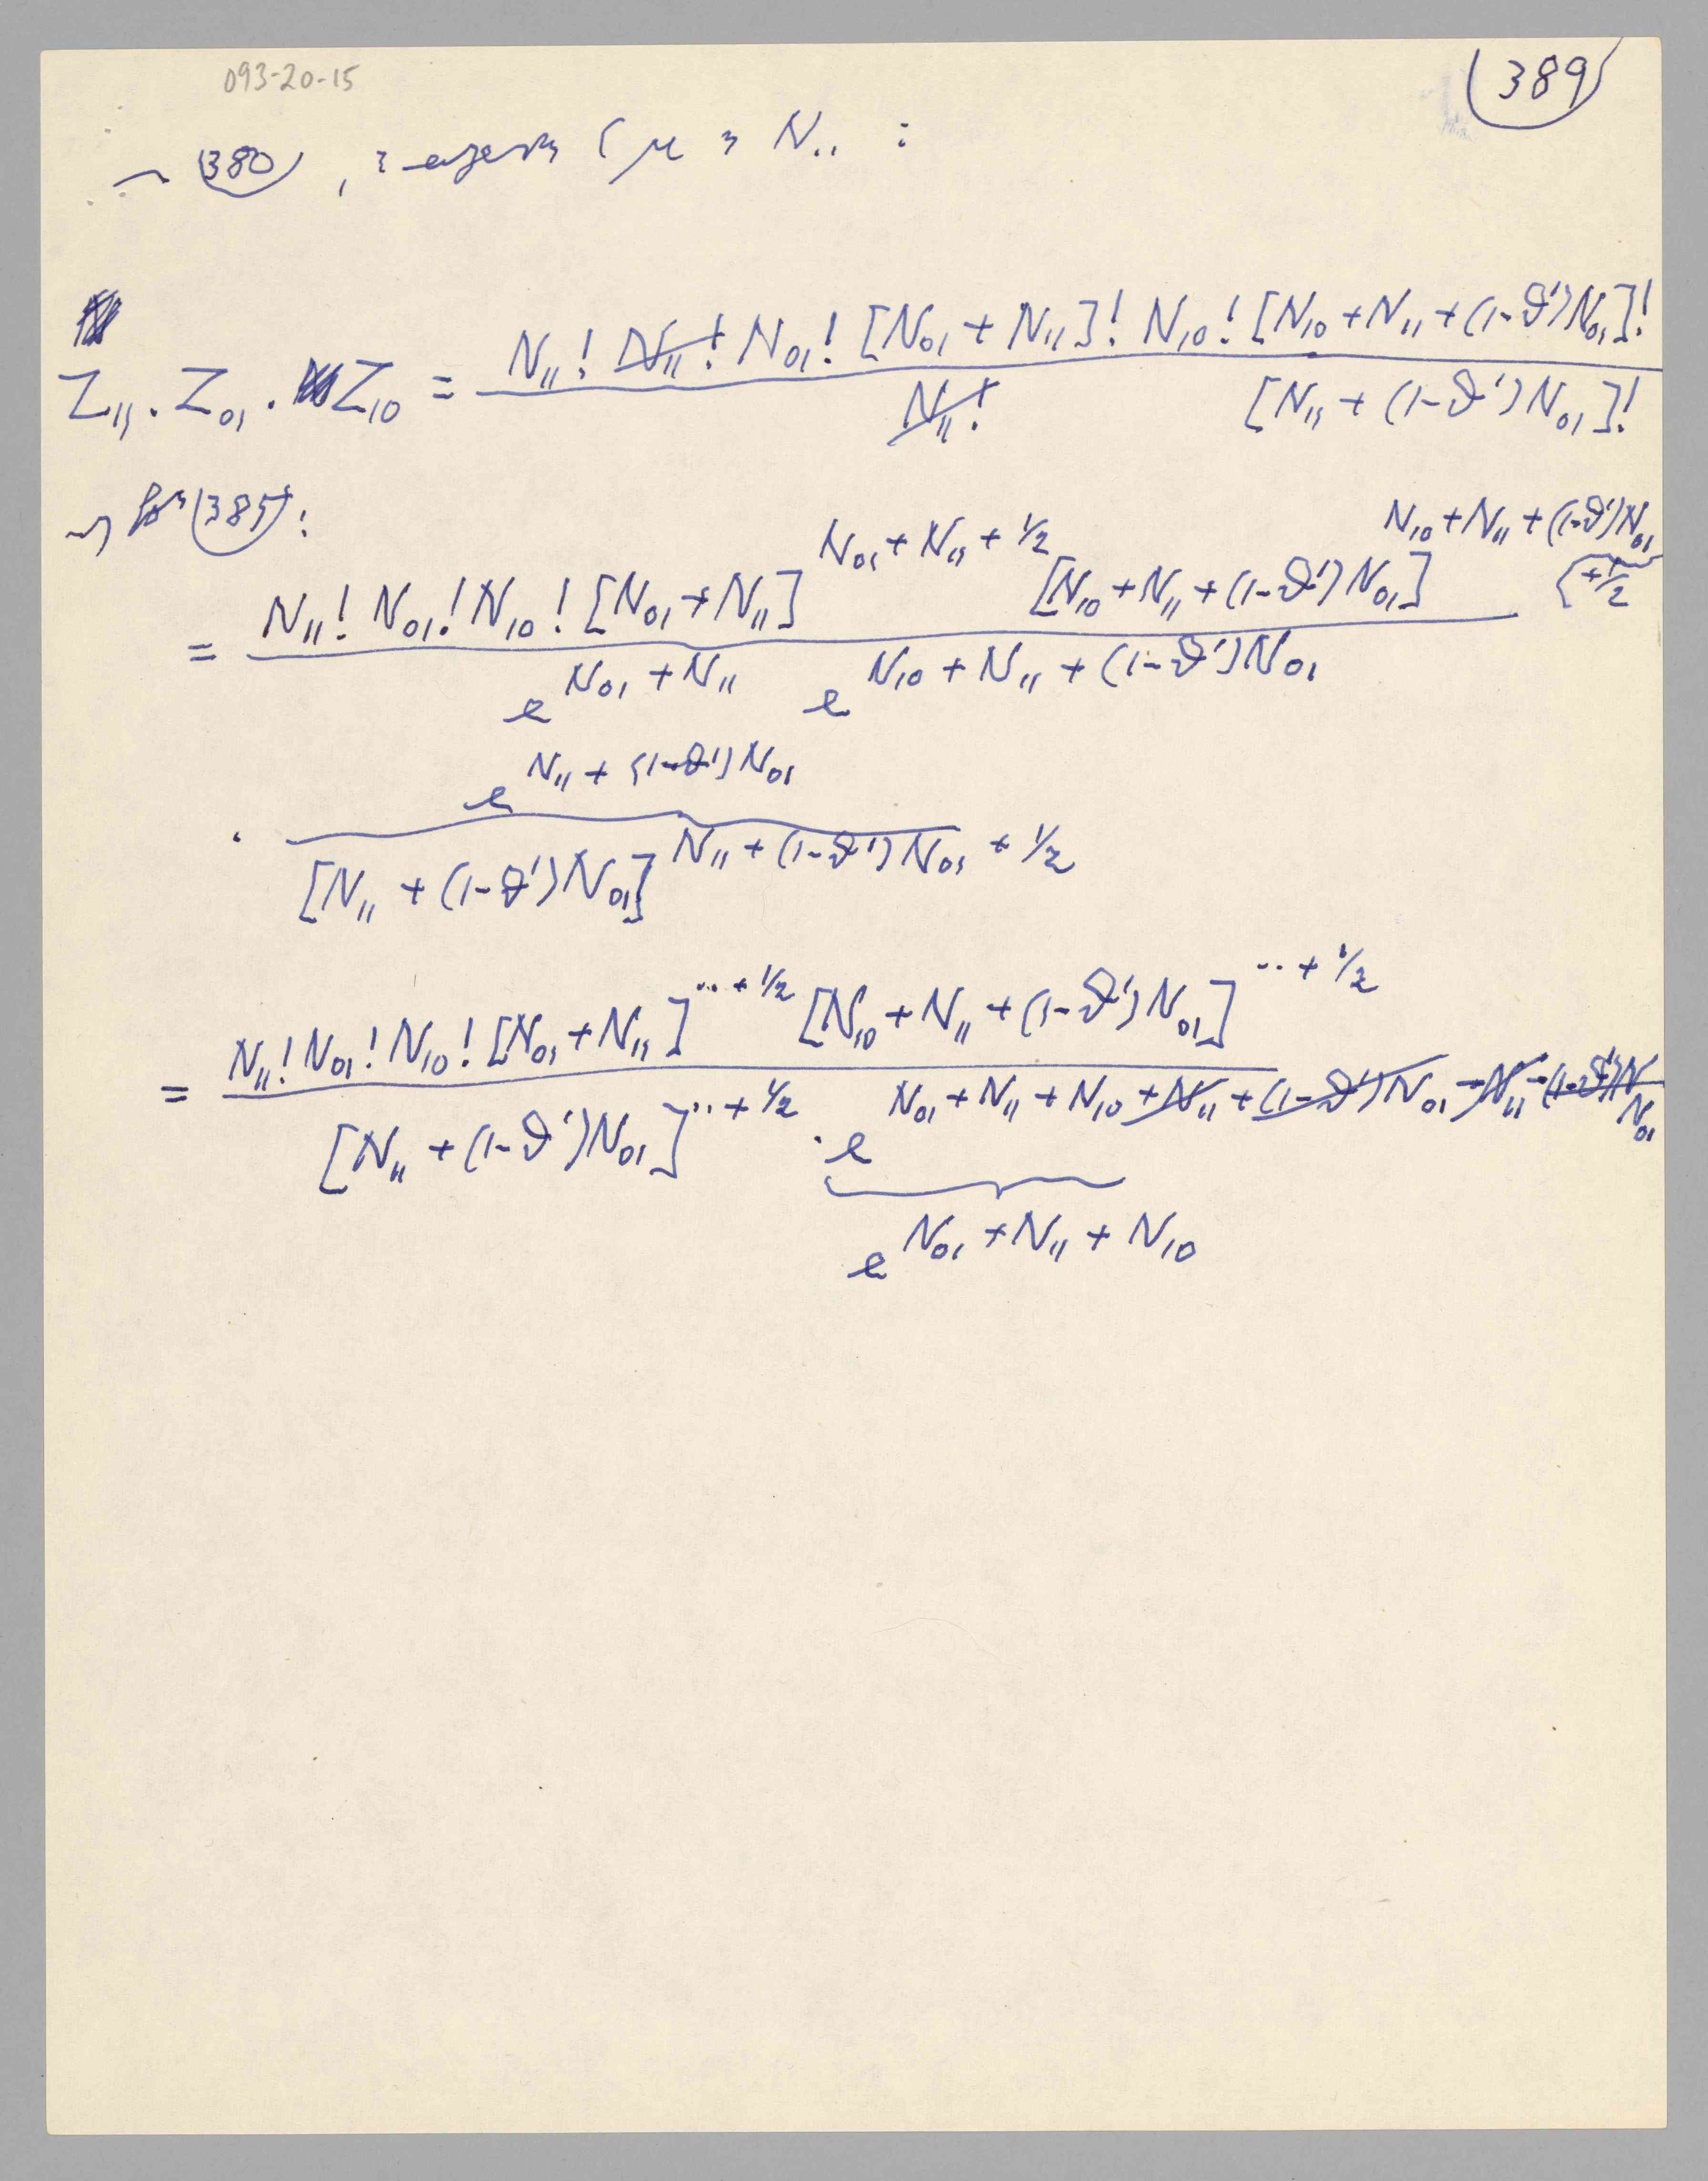 093-20-15
389
380 , μ N.. :
Z₁₁ . Z₀₁ . Z₁₀ = N₁₁! N₁₁! N₀₁! [N₀₁ + N₁₁]! N₁₀! [N₁₀ + N₁₁ + (1-ϑ')N₀₁]!
N₁₁! [N₁₁ + (1-ϑ')N₀₁]!
385 :
N₀₁ + N₁₁ + 1/2 N₁₀ + N₁₁ + (1-ϑ')N₀₁
= N₁₁! N₀₁! N₁₀! [N₀₁ + N₁₁] [N₁₀ + N₁₁ + (1-ϑ')N₀₁] + 1/2
e N₀₁ + N₁₁ e N₁₀ + N₁₁ + (1-ϑ')N₀₁
e N₁₁ + (1-ϑ')N₀₁
. [N₁₁ + (1-ϑ')N₀₁] N₁₁ + (1-ϑ')N₀₁ + 1/2
= N₁₁! N₀₁! N₁₀! [N₀₁ + N₁₁] ·· + 1/2 [N₁₀ + N₁₁ + (1-ϑ')N₀₁] ·· + 1/2
[N₁₁ + (1-ϑ')N₀₁] ·· + 1/2 . e N₀₁ + N₁₁ + N₁₀ + N₁₁ + (1-ϑ')N₀₁ - N₁₁ - (1-ϑ')N N₀₁
e N₀₁ + N₁₁ + N₁₀